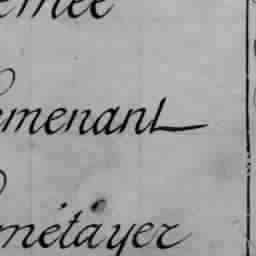 emee
emenant
métayer